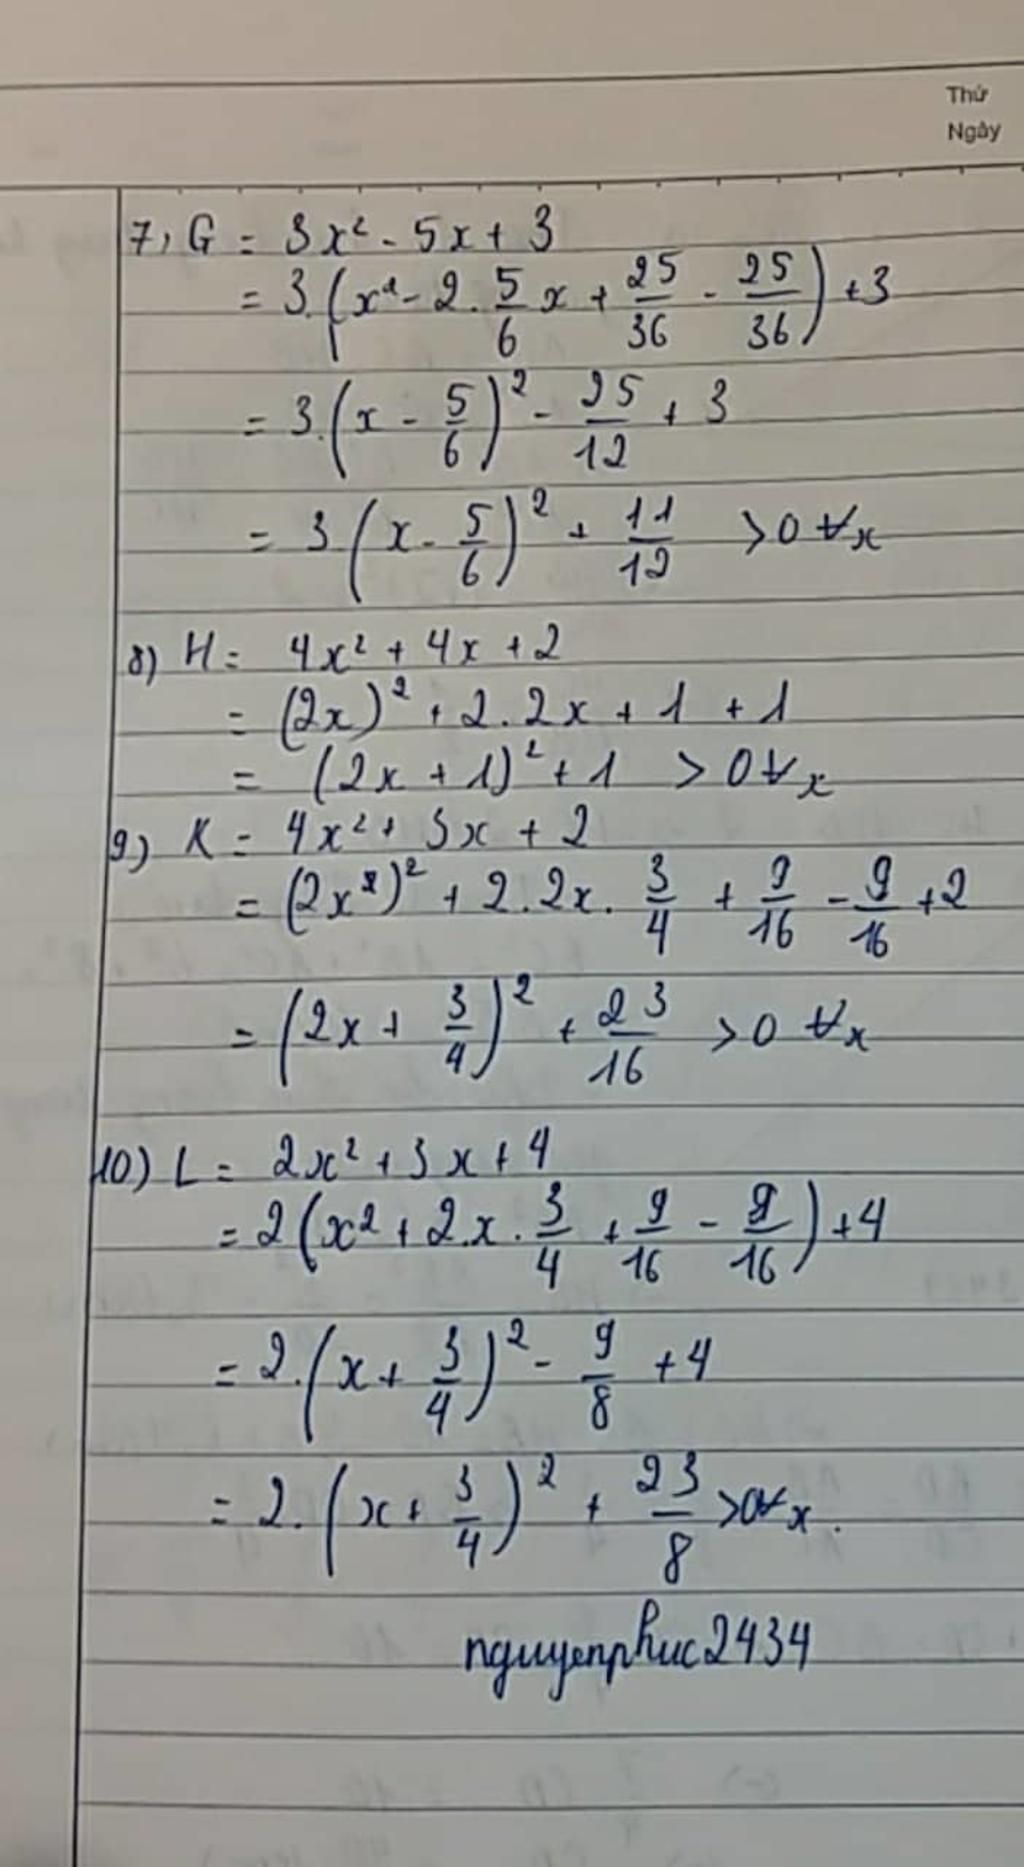 Thứ
Ngày
7, G = 3x² - 5x + 3
= 3.(x² - 2. 5/6 x + 25/36 - 25/36) + 3
= 3.(x - 5/6)² - 25/12 + 3
= 3 (x - 5/6)² + 11/12 >0 ∀x
8) H = 4x² + 4x + 2
= (2x)² + 2.2x + 1 + 1
= (2x + 1)² + 1 > 0 ∀x
9) K = 4x² + 3x + 2
= (2x²)² + 2.2x. 3/4 + 9/16 - 9/16 + 2
= (2x + 3/4)² + 23/16 >0 ∀x
10) L = 2x² + 3x + 4
= 2 (x² + 2.x . 3/4 + 9/16 - 9/16) + 4
= 2.(x + 3/4)² - 9/8 + 4
= 2.(x + 3/4)² + 23/8 >0∀x.
nguyenphuc2434